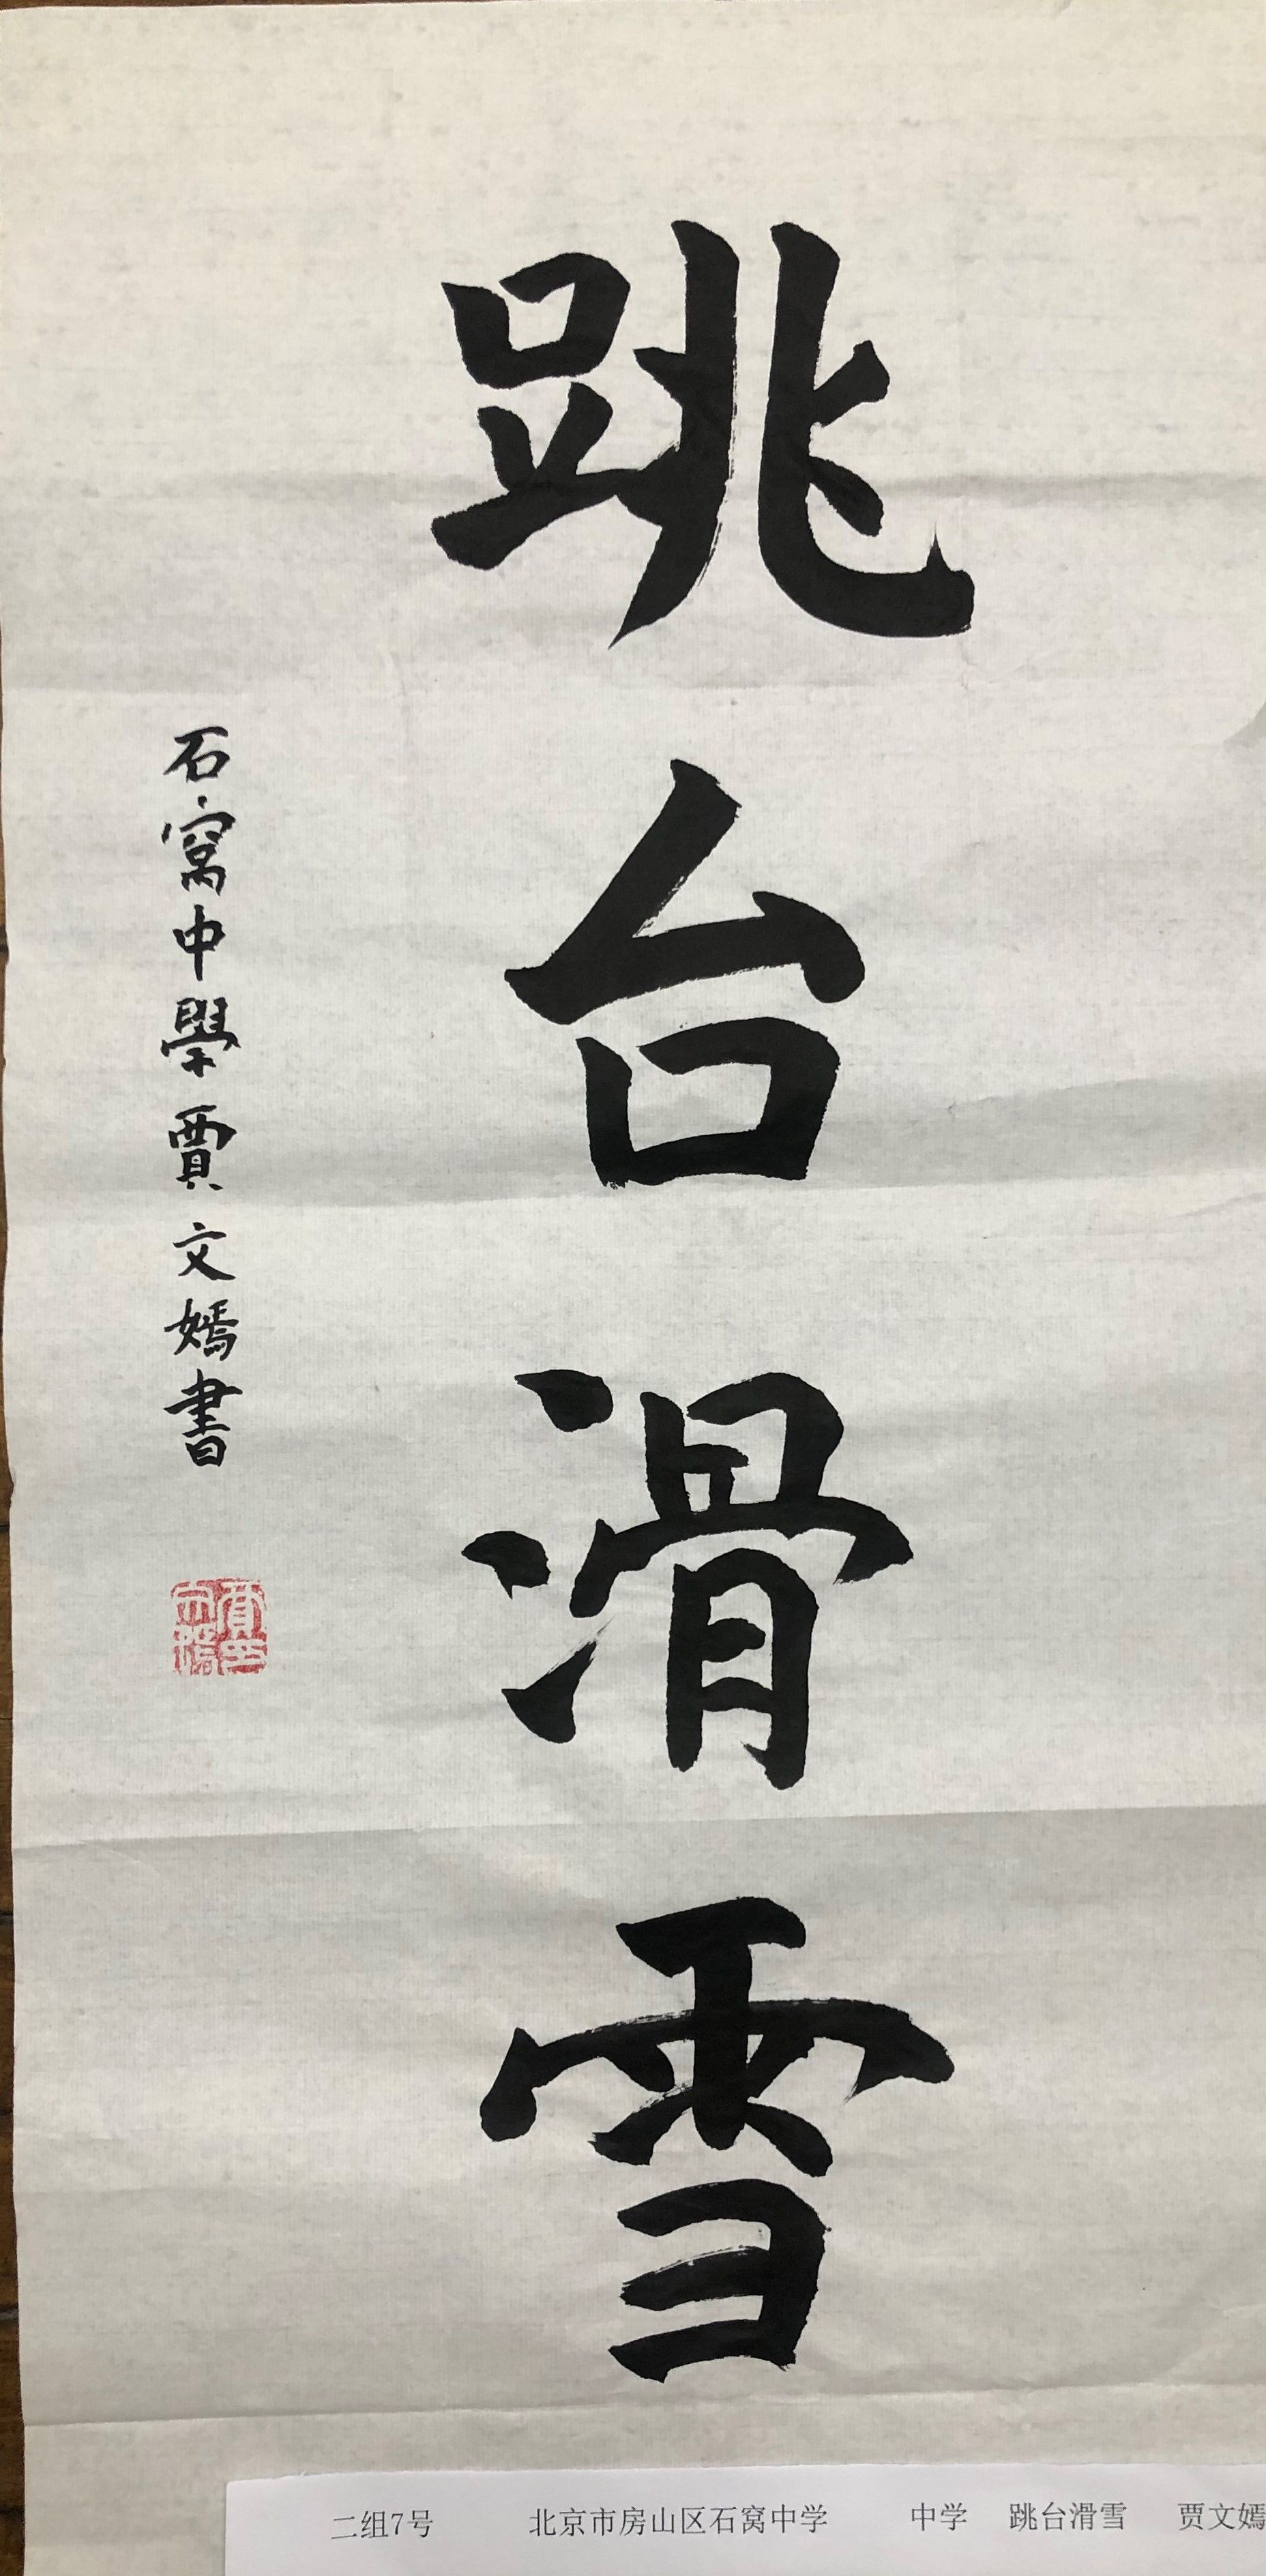 跳台滑雪
石窝中學賈文嫣書
二组7号 北京市房山区石窝中学 中学 跳台滑雪 贾文嫣